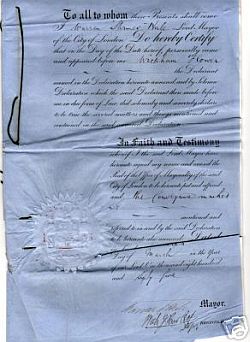 To all to whom these Presents shall come
I Warren Stormes Hale Lord Mayor
of the City of London Do hereby Certify
that on the Day of the Date hereof, personally came
and appeared before me
the Declarant
named in the Declaration hereunto annexed
Declaration which the said Declarant then made before
me in due form of Law, did solemnly and sincerely declare
to be true the several matters and things mentioned and
contained in the said annexed Declaration
In Faith and Testimony
whereof I the said Lord Mayor have
hereunto signed my name and caused the
Seal of the Office of Mayoralty of the said
City of London to be hereunto put and affixed
and the
mentioned and
referred to in and by the said Declaration
to be hereunto also annexed Dated
Day of March in the Year
of our Lord one thousand eight hundred
and Sixty five
Mayor.